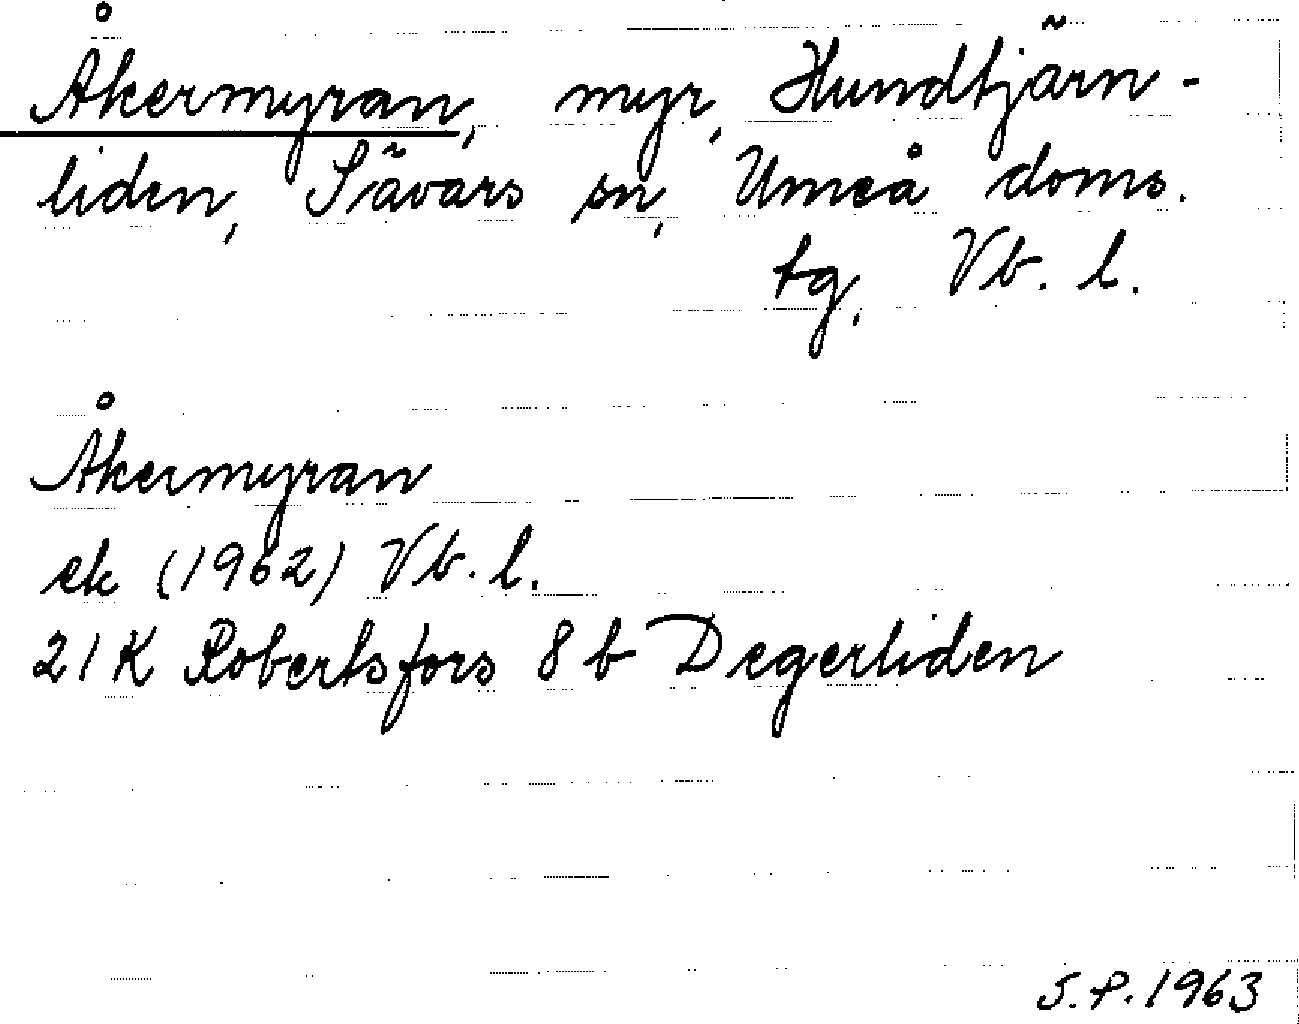 Åkermyran, myr, Hundtjärn-
liden, Sävars sn, Umeå doms.
tg, Vb. l.
Åkermyran
ek (1962) Vb. l.
21 K Robertsfors 8 b Degerliden
S.P. 1963